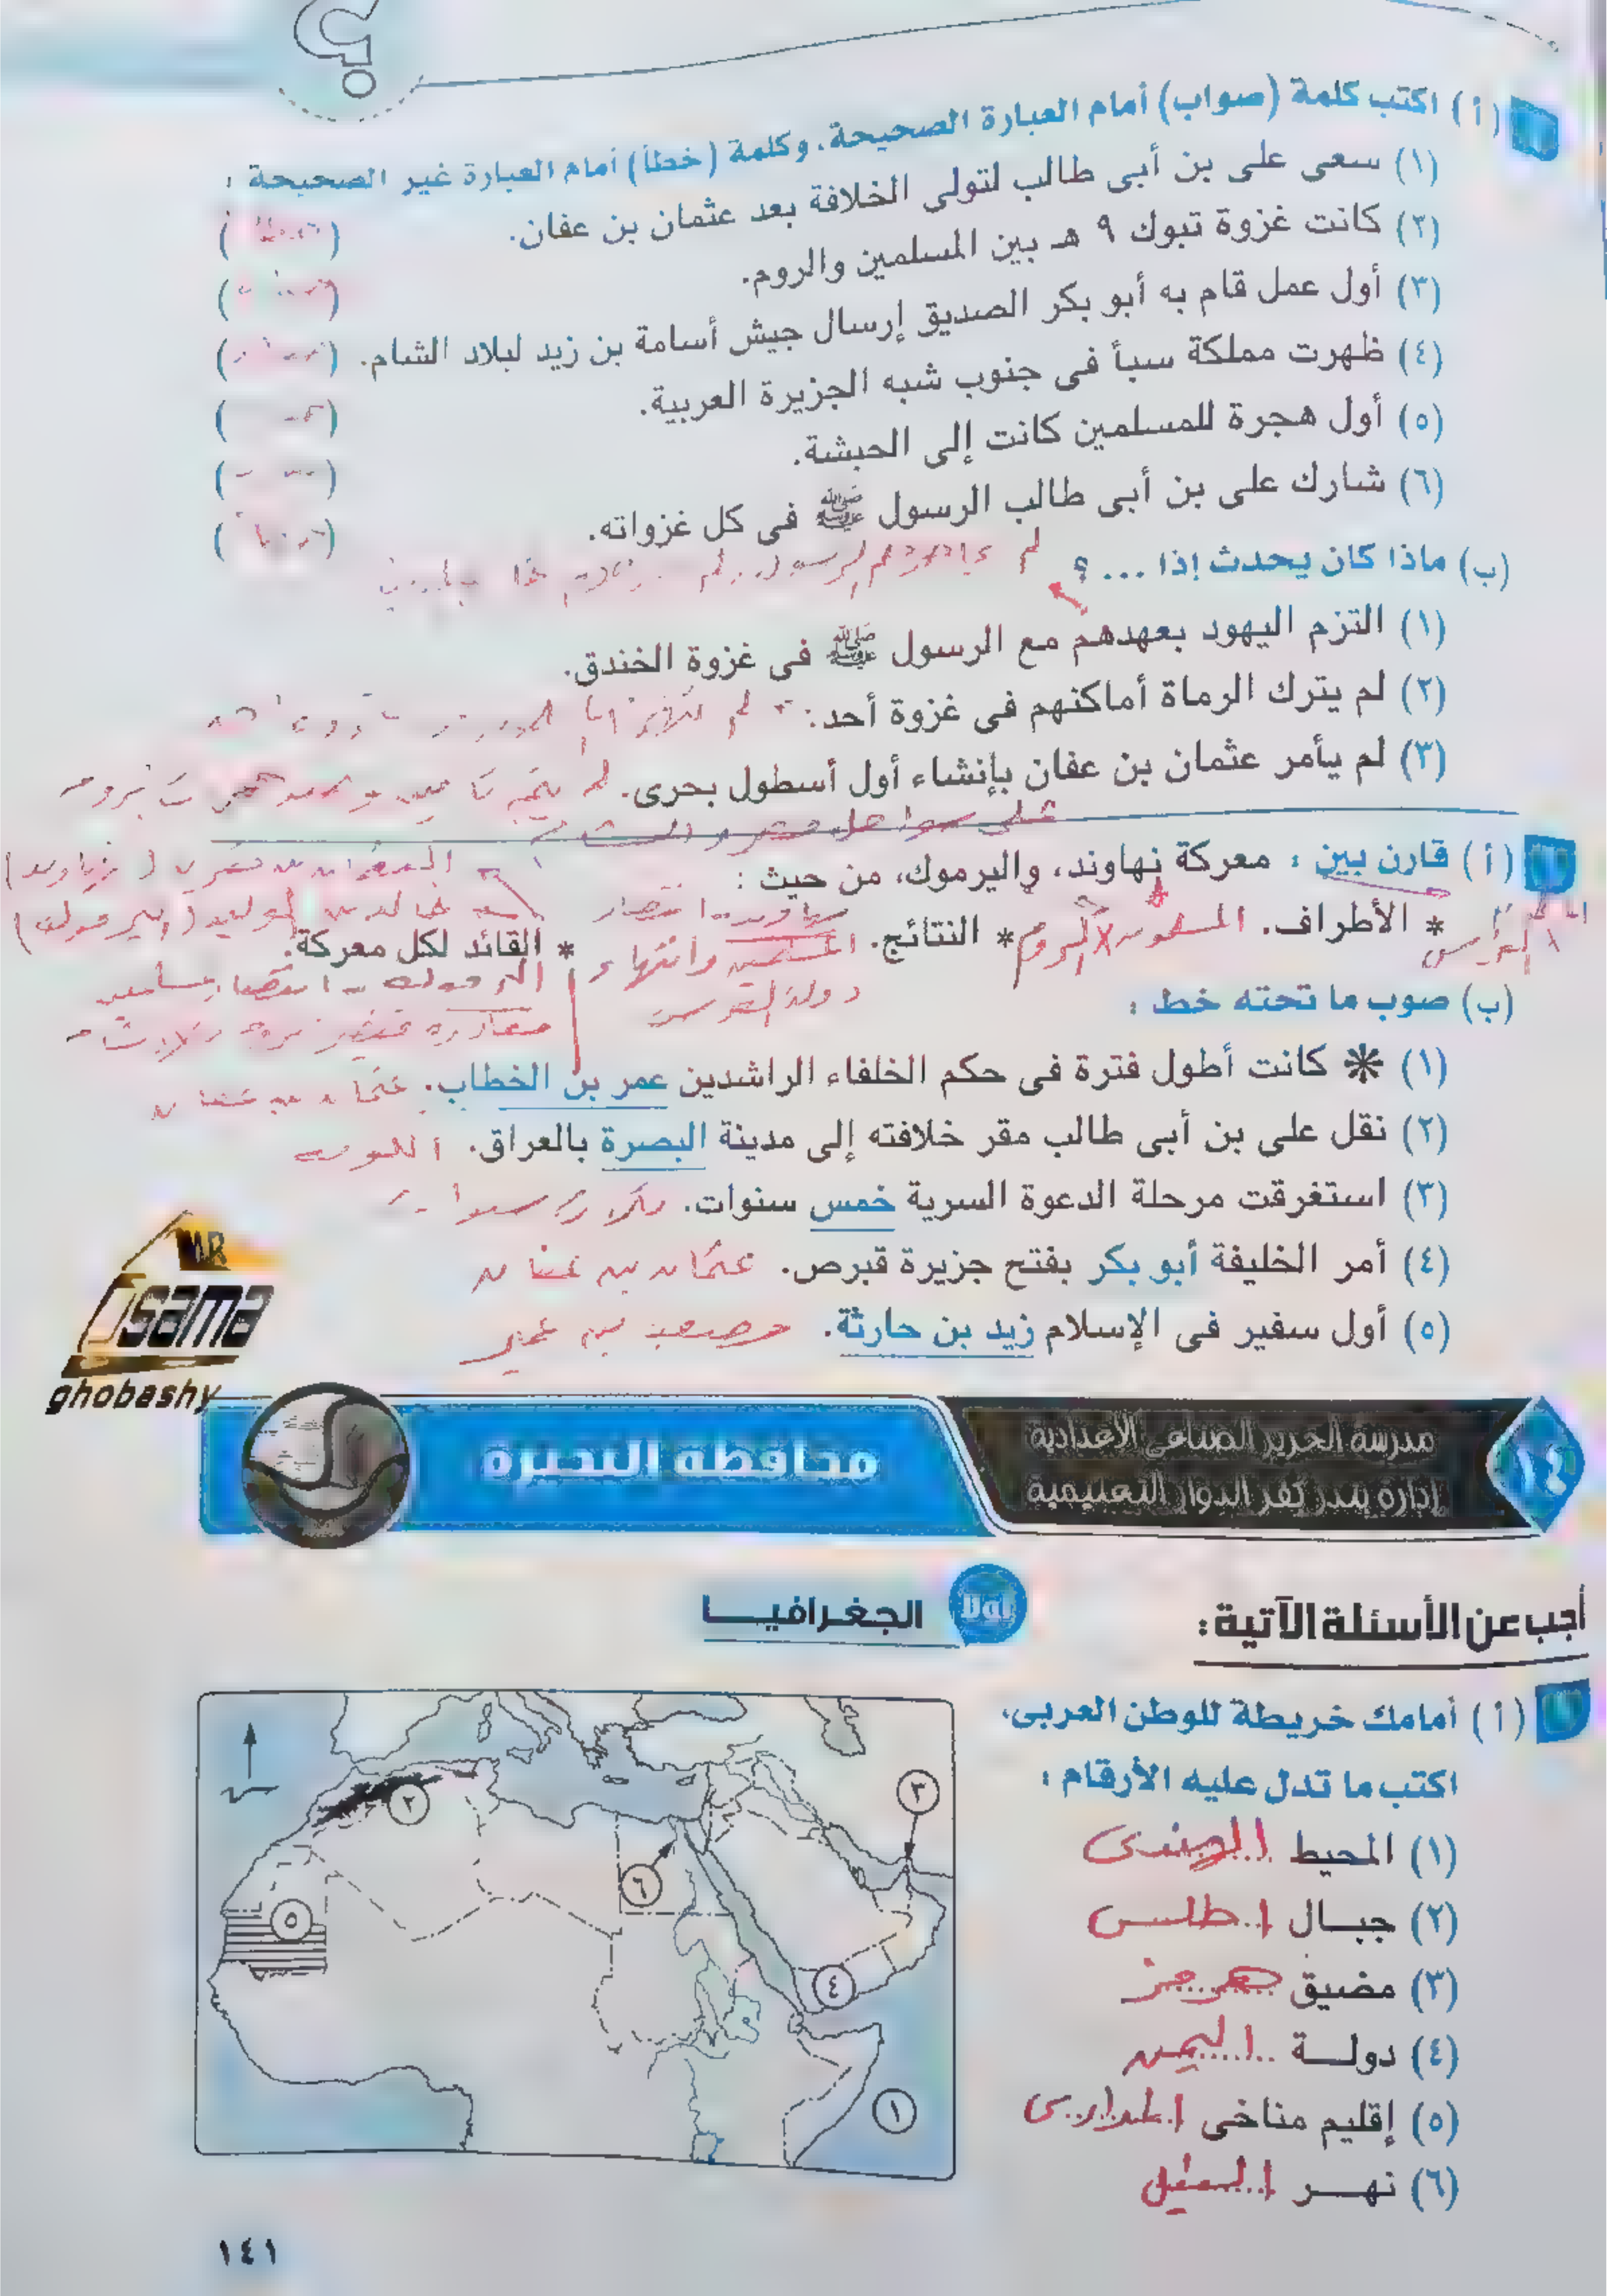 (أ) اكتب كلمة (صواب) أمام العبارة الصحيحة، وكلمة (خطأ) أمام العبارة غير الصحيحة :
(١) سعى على بن أبى طالب لتولى الخلافة بعد عثمان بن عفان. (خطأ)
(٢) كانت غزوة تبوك ٩ هـ بين المسلمين والروم. ( )
(٣) أول عمل قام به أبو بكر الصديق إرسال جيش أسامة بن زيد لبلاد الشام. ( )
(٤) ظهرت مملكة سبأ فى جنوب شبه الجزيرة العربية. ( )
(٥) أول هجرة للمسلمين كانت إلى الحبشة. ( )
(٦) شارك على بن أبى طالب الرسول ﷺ فى كل غزواته. ( )
(ب) ماذا كان يحدث إذا ... ؟ لم
(١) التزم اليهود بعهدهم مع الرسول ﷺ فى غزوة الخندق.
(٢) لم يترك الرماة أماكنهم فى غزوة أحد. لم
(٣) لم يأمر عثمان بن عفان بإنشاء أول أسطول بحرى. لم
على سواحل مصر والشام
(أ) قارن بين : معركة نهاوند، واليرموك، من حيث :
* الأطراف. المسلمون * النتائج. * القائد لكل معركة.
الفرس الروم انتصار المسلمين وانتهاء دولة الفرس
خالد بن الوليد (اليرموك)
(ب) صوب ما تحته خط :
(١) * كانت أطول فترة فى حكم الخلفاء الراشدين عمر بن الخطاب. عثمان بن عفان
(٢) نقل على بن أبى طالب مقر خلافته إلى مدينة البصرة بالعراق. الكوفة
(٣) استغرقت مرحلة الدعوة السرية خمس سنوات. ثلاث سنوات
(٤) أمر الخليفة أبو بكر بفتح جزيرة قبرص. عثمان بن عفان
(٥) أول سفير فى الإسلام زيد بن حارثة. مصعب بن عمير
MR
Osama
ghobashy
١٤
مدرسة الحرير الصناعى الإعدادية
إدارة بندر كفر الدوار التعليمية
محافظة البحيرة
أجب عن الأسئلة الآتية :
أولاً الجغرافيـــا
(أ) أمامك خريطة للوطن العربى،
اكتب ما تدل عليه الأرقام :
(١) المحيط الهندى
(٢) جبـال اطلس
(٣) مضيق هرمز
(٤) دولـــة اليمن
(٥) إقليم مناخى المدارى
(٦) نهـــر النيل
٣
٢
٦
٥
٤
١
١٤١